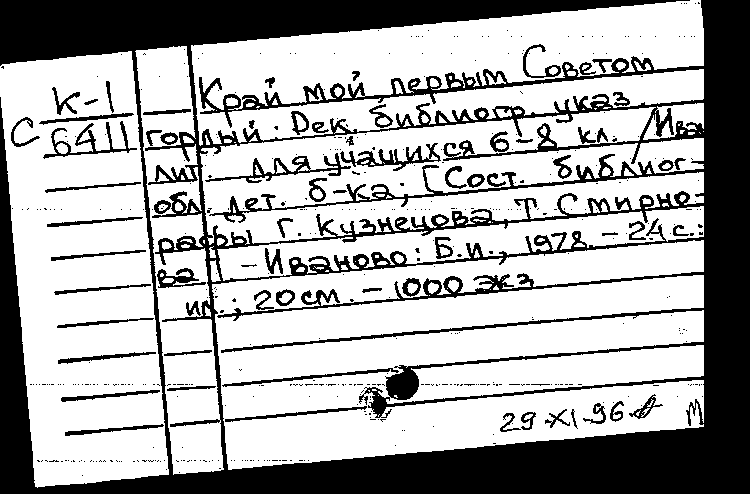 К-1
С 6411
Край мой первым Советом
гордый: Рек. библиогр. указ.
лит. для учащихся 6-8 кл. / Ива
обл. дет. б-ка; [Сост. библиог-
рафы Г. Кузнецова, Т. Смирно-
ва]. - Иваново: Б.и., 1978. - 24 с.:
ил.; 20 см. - 1000 экз
29-XI-96
М